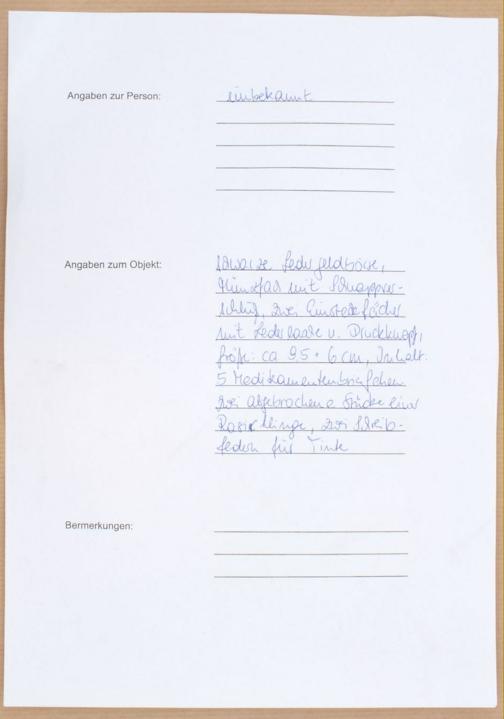 Angaben zur Person: unbekannt
Angaben zum Objekt: schwarze Ledergeldbörse,
Münzfach mit Schnappver-
schluß, zwei Einsteckfächer
mit Lederlasche u. Druckknopf,
Größe: ca 9,5 * 6 cm, Inhalt:
5 Medikamentenbriefchen
zwei abgebrochene Stücke einer
Rasierklinge, zwei Schreib-
federn für Tinte
Bermerkungen: